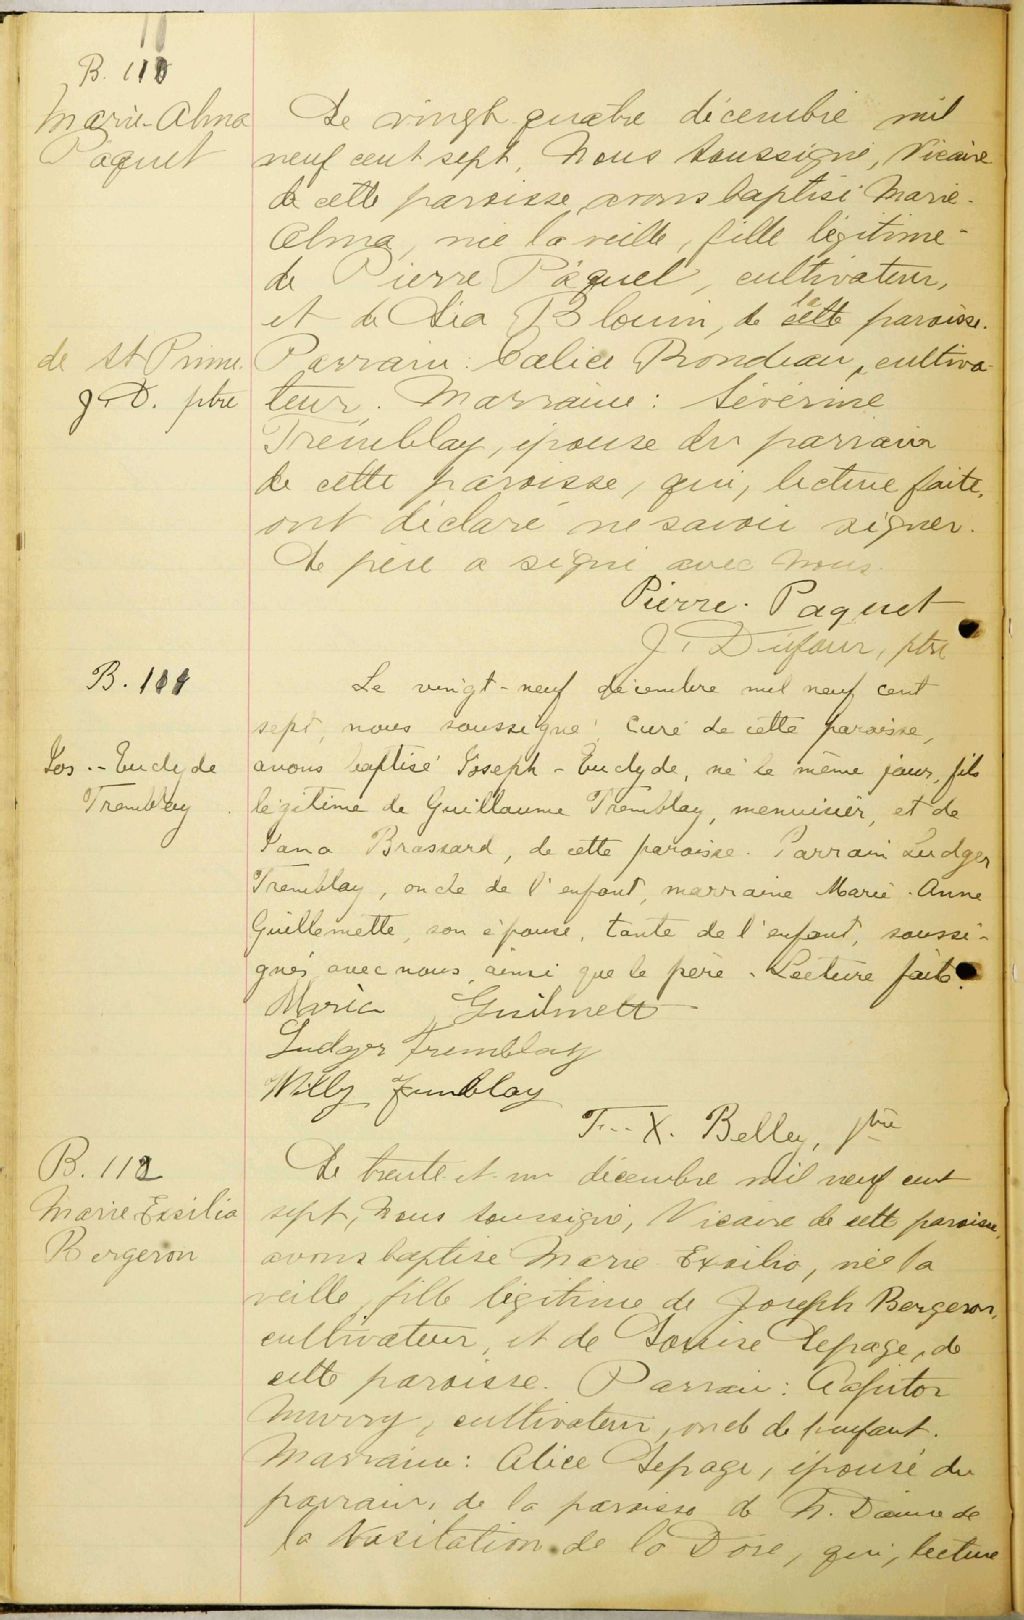 B. 110
Marie-Alma
Paquet
Le vingt quatre décembre mil
neuf cent sept, Nous soussigné, Vicaire
de cette paroisse avons baptisé Marie-
Alma, née la veille, fille légitime
de Pierre Paquet, cultivateur,
et de Lia Blouin, de la cette paroisse.
de St Prime.
J. D. ptre
Parrain: Calice Rondeau, cultiva-
teur. Marraine: Séverine
Tremblay, épouse du parrain
de cette paroisse, qui, lecture faite,
ont déclaré ne savoir signer.
Le père a signé avec nous.
Pierre Paquet
J. Dufour, ptre
B. 111
Jos.-Euclyde
Tremblay
Le vingt-neuf décembre mil neuf cent
sept, nous soussigné, Curé de cette paroisse,
avons baptisé Joseph-Euclyde, né le même jour, fils
légitime de Guillaume Tremblay, menuisier, et de
Jana Brassard, de cette paroisse. Parrain Ludger
Tremblay, oncle de l'enfant, marraine Marie-Anne
Guillemette, son épouse, tante de l'enfant, soussi-
gnés avec nous, ainsi que le père. Lecture faite.
Maria Guilmett
Ludger Tremblay
Willy Tremblay
F.-X. Belley, ptre
B. 112
Marie Exsilia
Bergeron
Le trente et un décembre mil neuf cent
sept, Nous soussigné, Vicaire de cette paroisse,
avons baptisé Marie Exsilia, née la
veille, fille légitime de Joseph Bergeron,
cultivateur, et de Louise Lepage, de
cette paroisse. Parrain: Capitor
Murry, cultivateur, oncle de l'enfant.
Marraine: Alice Lepage, épouse du
parrain, de la paroisse de N. Dame de
la Visitation de la Dore, qui, lecture